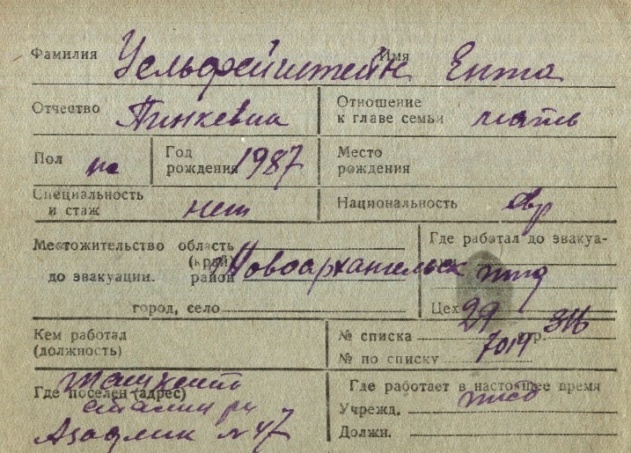 Фамилия Усльфейнштейн Имя Ента
Отчество Пинкевна Отношение к главе семьи мать
Пол Год рождения 1987 Место рождения
Специальность и стаж нет Национальность евр
Местожительство область Где работал до эвакуа-
(край)
до эвакуации. район Новоархангельск
город, село Цех 29 стр. 316
Кем работал № списка
(должность) № по списку 7014
Ташкент Где работает в настоящее время
Где поселен (адрес) Учрежд.
сталин р
Азадлик № 47 Должн.